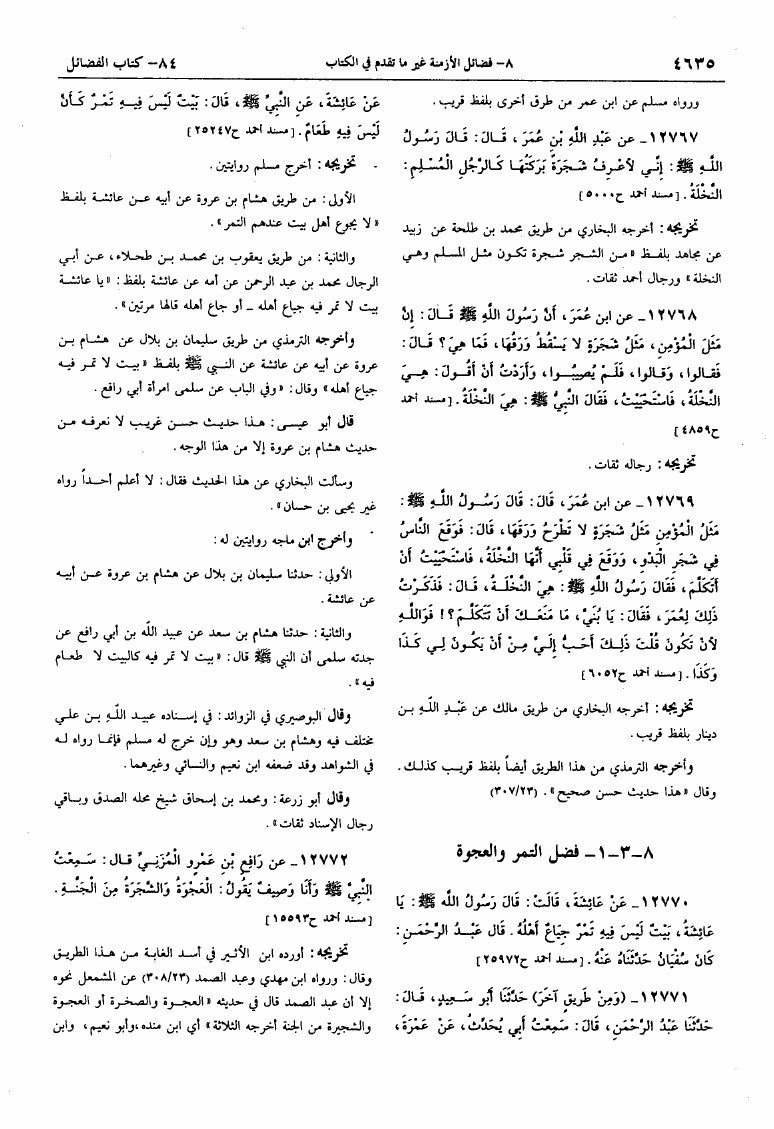 ٤٦٣٥
٨- فضائل الأزمنة غير ما تقدم في الكتاب
٨٤- كتاب الفضائل
ورواه مسلم عن ابن عمر من طرق أخرى بلفظ قريب.
١٢٧٦٧- عن عَبْدِ اللَّهِ بْنِ عُمَرَ، قَالَ: قَالَ رَسُولُ
اللَّهِ ﷺ: إِنِّي لأَعْرِفُ شَجَرَةً بَرَكَتُهَا كَالرَّجُلِ الْمُسْلِمِ:
النَّخْلَةُ. [مسند أحمد ح٥٠٠٠]
تخريجه: أخرجه البخاري من طريق محمد بن طلحة عن زبيد
عن مجاهد بلفظ «من الشجر شجرة تكون مثل المسلم وهي
النخلة» ورجال أحمد ثقات.
١٢٧٦٨- عن ابن عُمَرَ، أَنَّ رَسُولَ اللَّهِ ﷺ قَالَ: إِنَّ
مَثَلَ الْمُؤْمِنِ، مَثَلُ شَجَرَةٍ لا يَسْقُطُ وَرَقُهَا، فَمَا هِيَ؟ قَالَ:
فَقَالوا، وَقَالوا، فَلَمْ يُصِيبُوا، وَأَرَدْتُ أَنْ أَقُولَ: هِيَ
النَّخْلَةُ، فَاسْتَحْيَيْتُ، فَقَالَ النَّبِيُّ ﷺ: هِيَ النَّخْلَةُ. [مسند أحمد
ح٤٨٥٩]
تخريجه: رجاله ثقات.
١٢٧٦٩- عن ابن عُمَرَ، قَالَ: قَالَ رَسُولُ اللَّهِ ﷺ:
مَثَلُ الْمُؤْمِنِ مَثَلُ شَجَرَةٍ لا تَطْرَحُ وَرَقَهَا، قَالَ: فَوَقَعَ النَّاسُ
فِي شَجَرِ الْبَدْوِ، وَوَقَعَ فِي قَلْبِي أَنَّهَا النَّخْلَةُ، فَاسْتَحْيَيْتُ أَنْ
أَتَكَلَّمَ، فَقَالَ رَسُولُ اللَّهِ ﷺ: هِيَ النَّخْلَةُ، قَالَ: فَذَكَرْتُ
ذَلِكَ لِعُمَرَ، فَقَالَ: يَا بُنَيَّ، مَا مَنَعَكَ أَنْ تَتَكَلَّمَ؟! فَوَاللَّهِ
لأَنْ تَكُونَ قُلْتَ ذَلِكَ أَحَبُّ إِلَيَّ مِنْ أَنْ يَكُونَ لِي كَذَا
وَكَذَا. [مسند أحمد ح٦٠٥٢]
تخريجه: أخرجه البخاري من طريق مالك عن عَبْدِ اللَّهِ بن
دينار بلفظ قريب.
وأخرجه الترمذي من هذا الطريق أيضاً بلفظ قريب كذلك.
وقال «هذا حديث حسن صحيح». (٣٠٧/٢٣)
٨-٣-١- فضل التمر والعجوة
١٢٧٧٠- عَنْ عَائِشَةَ، قَالَتْ: قَالَ رَسُولُ اللَّه ﷺ: يَا
عَائِشَةُ، بَيْتٌ لَيْسَ فِيهِ تَمْرٌ جِيَاعٌ أَهْلُهُ. قال عَبْدُ الرَّحْمَنِ:
كَانَ سُفْيَانُ حَدَّثَنَاهُ عَنْهُ. [مسند أحمد ح٢٥٩٧٢]
١٢٧٧١- (وَمِنْ طَرِيقٍ آخَرَ) حَدَّثَنَا أَبُو سَعِيدٍ، قَالَ:
حَدَّثَنَا عَبْدُ الرَّحْمَنِ، قَالَ: سَمِعْتُ أَبِي يُحَدِّثُ، عَنْ عَمْرَةَ،
عَنْ عَائِشَةَ، عَنِ النَّبِيِّ ﷺ، قَالَ: بَيْتٌ لَيْسَ فِيهِ تَمْرٌ كَأَنْ
لَيْسَ فِيهِ طَعَامٌ. [مسند أحمد ح٢٥٢٤٧]
تخريجه: أخرج مسلم روايتين.
الأولى: من طريق هشام بن عروة عن أبيه عن عائشة بلفظ
«لا يجوع أهل بيت عندهم التمر».
والثانية: من طريق يعقوب بن محمد بن طحلاء، عن أبي
الرجال محمد بن عبد الرحمن عن أمه عن عائشة بلفظ: «يا عائشة
بيت لا تمر فيه جياع أهله - أو جاع أهله قالها مرتين».
وأخرجه الترمذي من طريق سليمان بن بلال عن هشام بن
عروة عن أبيه عن عائشة عن النبي ﷺ بلفظ «بيت لا تمر فيه
جياع أهله» وقال: «وفي الباب عن سلمى امرأة أبي رافع.
قال أبو عيسى: هذا حديث حسن غريب لا نعرفه من
حديث هشام بن عروة إلا من هذا الوجه.
وسألت البخاري عن هذا الحديث فقال: لا أعلم أحداً رواه
غير يحيى بن حسان».
وأخرج ابن ماجه روايتين له:
الأولى: حدثنا سليمان بن بلال عن هشام بن عروة عن أبيه
عن عائشة.
والثانية: حدثنا هشام بن سعد عن عبيد الله بن أبي رافع عن
جدته سلمى أن النبي ﷺ قال: «بيت لا تمر فيه كالبيت لا طعام
فيه».
وقال البوصيري في الزوائد: في إسناده عبيد اللَّه بن علي
مختلف فيه وهشام بن سعد وهو وإن خرج له مسلم فإنما رواه له
في الشواهد وقد ضعفه ابن نعيم والنسائي وغيرهما.
وقال أبو زرعة: ومحمد بن إسحاق شيخ محله الصدق وباقي
رجال الإسناد ثقات».
١٢٧٧٢- عن رَافِعِ بْنِ عَمْرٍو الْمُزَنِيِّ قال: سَمِعْتُ
النَّبِيَّ ﷺ وَأَنَا وَصِيفٌ يَقُولُ: الْعَجْوَةُ وَالشَّجَرَةُ مِنَ الْجَنَّةِ.
[مسند أحمد ح١٥٥٩٣]
تخريجه: أورده ابن الأثير في أسد الغابة من هذا الطريق
وقال: ورواه ابن مهدي وعبد الصمد (٣٠٨/٢٣) عن المشمعل نحوه
إلا أن عبد الصمد قال في حديثه «العجوة والصخرة أو العجوة
والشجيرة من الجنة أخرجه الثلاثة» أي ابن منده، وأبو نعيم، وابن